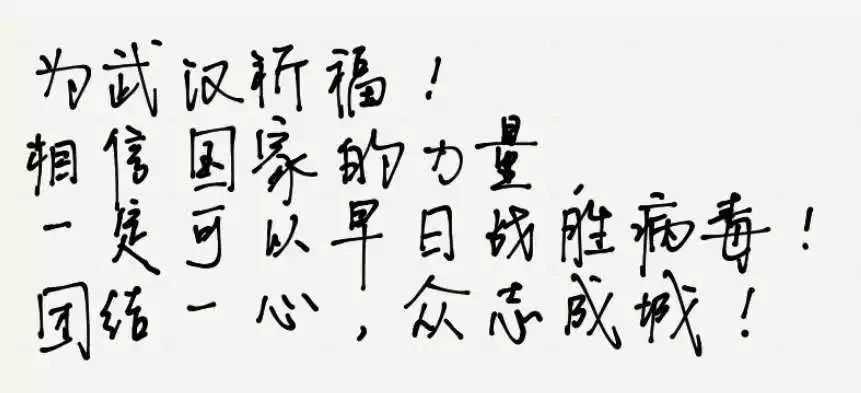 为武汉祈福！
相信国家的力量
一定可以早日战胜病毒！
团结一心，众志成城！